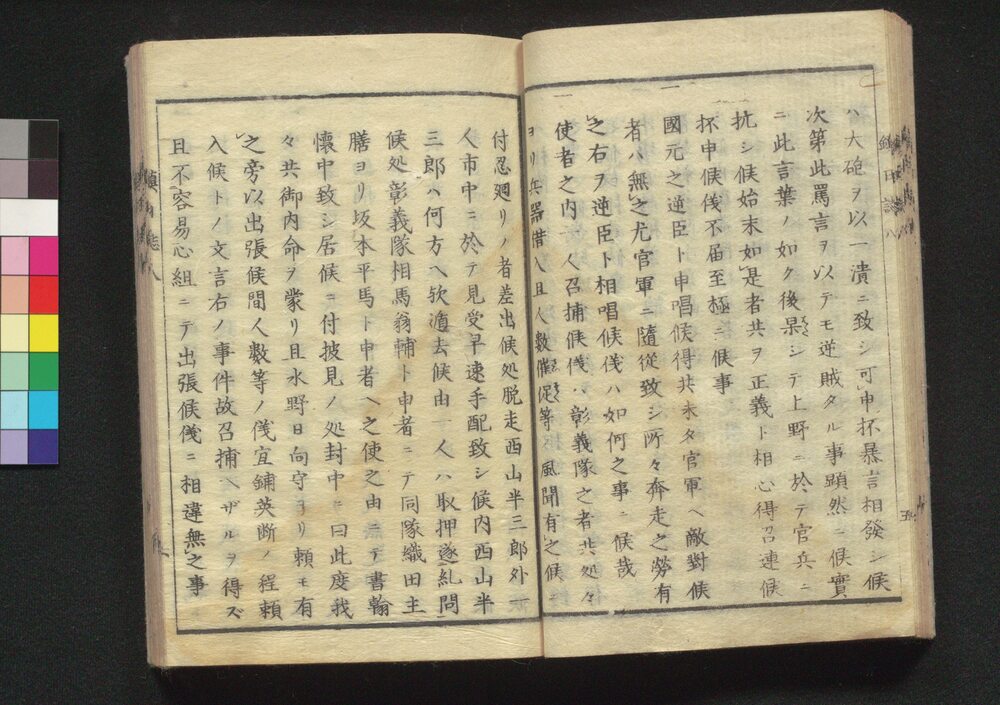 ハ大砲ヲ以一潰ニ致シ可申抔暴言相發シ候
次第此罵言ヲ以テモ逆賊タル事顕然ニ候實
ニ此言葉ノ如ク後果シテ上野ニ於テ官兵ニ
抗シ候始末如是者共ヲ正義ト相心得召連候
抔申候儀不届至極ニ候事
一
國元之逆臣ト申唱候得共未タ官軍ヘ敵對候
者ハ無之尤官軍ニ隨從致シ所々奔走之勞有
之右ヲ逆臣ト相唱候儀ハ如何之事ニ候哉
一
使者之内一人召捕候儀ハ彰義隊之者共処々
ヨリ兵器借入且人数催促等風聞有之候ニ
付忍廻リノ者差出候処脱走西山半三郎外一
人市中ニ於テ見受早速手配致シ候内西山半
三郎ハ何方ヘ欤遁去候由一人ハ取押遂糺問
候処彰義隊相馬翁輔ト申者ニテ同隊織田主
膳ヨリ坂本平馬ト申者ヘ之使之由ニテ書翰
懐中致シ居候ニ付披見ノ処封中ニ曰此度我
々共御内命ヲ蒙リ且水野日向守ヨリ頼モ有
之旁以出張候間人數等ノ儀宜鋪英断ノ程頼
入候トノ文言右ノ事件故召捕ヘザルヲ得ズ
且不容易心組ニテ出張候儀ニ相違無之事